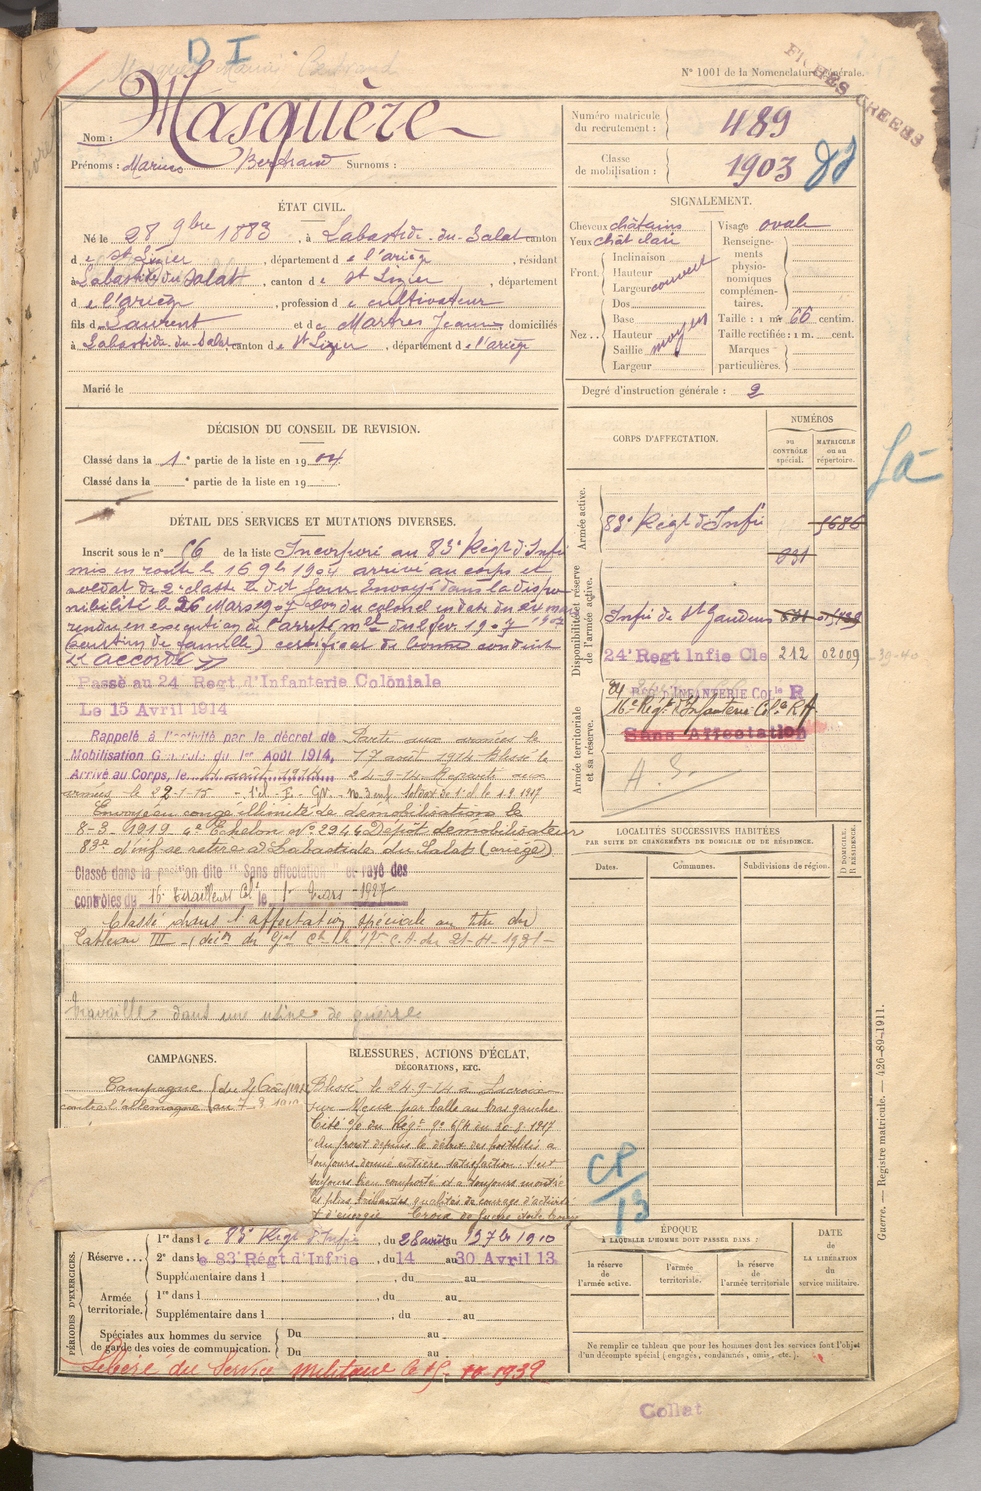 D I
N° 1001 de la Nomenclature générale.
FICHES CREEES
Nom : Masquère
Prénoms : Marius Bertrand Surnoms :
Numéro matricule du recrutement : 489
Classe de mobilisation : 1903
ÉTAT CIVIL.
Né le 28 9bre 1883, à Labastide-du-Salat canton
de St Lizier, département de l'ariège, résidant
à Labastide du Salat, canton de St Lizier, département
de l'ariège, profession de cultivateur
fils de Laurent et de Martres Jeanne, domiciliés
à Labastide-du-Salat canton de St Lizier, département de l'ariège
Marié le
SIGNALEMENT.
Cheveux châtains
Yeux chât clair
Front. Inclinaison
Hauteur
Largeur couvert
Nez.. Dos
Base
Hauteur moyen
Saillie
Largeur
Visage ovale
Renseignements physionomiques complémentaires.
Taille : 1 m 66 centim.
Taille rectifiée : 1 m. cent.
Marques particulières.
Degré d'instruction générale : 2
DÉCISION DU CONSEIL DE REVISION.
Classé dans la 1e partie de la liste en 1904.
Classé dans la e partie de la liste en 19
CORPS D'AFFECTATION.
NUMÉROS
au CONTRÔLE spécial.
MATRICULE ou au répertoire.
Armée active.
83e Régt d'Infie 5686
831
Disponibilité et réserve de l'armée active.
Infie de St Gaudens
24e Regt Infie Cle 212 02009
39-40
Armée territoriale et sa réserve.
Régt d'INFANTERIE Colle R
16e Régt d'Infanterie Cole
Sans Affectation
A. S.
DÉTAIL DES SERVICES ET MUTATIONS DIVERSES.
Inscrit sous le n° 56 de la liste Incorporé au 83e Régt d'Infie
mis en route le 16 9bre 1904 arrivé au corps et
soldat de 2e classe le dit jour Envoyé dans la dispo-
nibilité le 26 Mars 1907 du colonel en date du 24 mars
rendu en exécution de l'arrêté mel du 2 fev. 1907
(soutien de famille) certificat de bonne conduite
accordé
Passé au 24 Regt d'Infanterie Coloniale
Le 15 Avril 1914
Rappelé à l'activité par le décret de
Mobilisation Générale du 1er Août 1914,
Arrivé au Corps, le août 1914 Parti aux armées le
17 août 1914 Blessé le
24-9-14 Reparti aux
armées le 22-1-15 Soldat de 1e cl. le 1.9.1917
Envoyé en congé illimité de démobilisation le
8-3-1919 4e Echelon N° 2944 Dépôt démobilisateur
83e d'inf se retire à Labastide du Salat (ariège)
Classé dans la position dite "Sans affectation" et rayé des
contrôles du 16e Tirailleurs Col le 1er Mars 1927
Classé dans l'affectation spéciale au titre du
Tableau III
Travaille dans une usine de guerre
LOCALITÉS SUCCESSIVES HABITÉES
PAR SUITE DE CHANGEMENTS DE DOMICILE OU DE RÉSIDENCE.
Dates. Communes. Subdivisions de région.
D DOMICILE. R RÉSIDENCE.
CAMPAGNES.
Campagne
contre l'allemagne
BLESSURES, ACTIONS D'ÉCLAT,
DÉCORATIONS, ETC.
Blessé le 24-9-14 à Lacroix
sur Meuse par balle au bras gauche
Cité o/o du Régt du 30-8-1917
"Au front depuis le début des hostilités a
toujours donné entière satisfaction. S'est
toujours bien comporté et a toujours montré
les plus brillantes qualités de courage d'activité
et d'énergie Croix de Guerre étoile bronze
CP/13
PÉRIODES D'EXERCICES.
Réserve...
1re dans le 83e Régt d'Infie, du 28 août au 19 7bre 1910
2e dans le 83e Régt d'Infrie, du 14 au 30 Avril 13.
Supplémentaire dans l , du au
Armée territoriale.
1re dans l , du au
Supplémentaire dans l , du au
Spéciales aux hommes du service de garde des voies de communication.
Du au
Du au
Libéré du Service militaire le 15 1932
ÉPOQUE
À LAQUELLE L'HOMME DOIT PASSER DANS :
la réserve de l'armée active.
l'armée territoriale.
la réserve de l'armée territoriale
DATE de LA LIBÉRATION du service militaire.
Ne remplir ce tableau que pour les hommes dont les services font l'objet
d'un décompte spécial (engagés, condamnés, omis, etc.).
Guerre. — Registre matricule. — 426-89-1911.
Collat